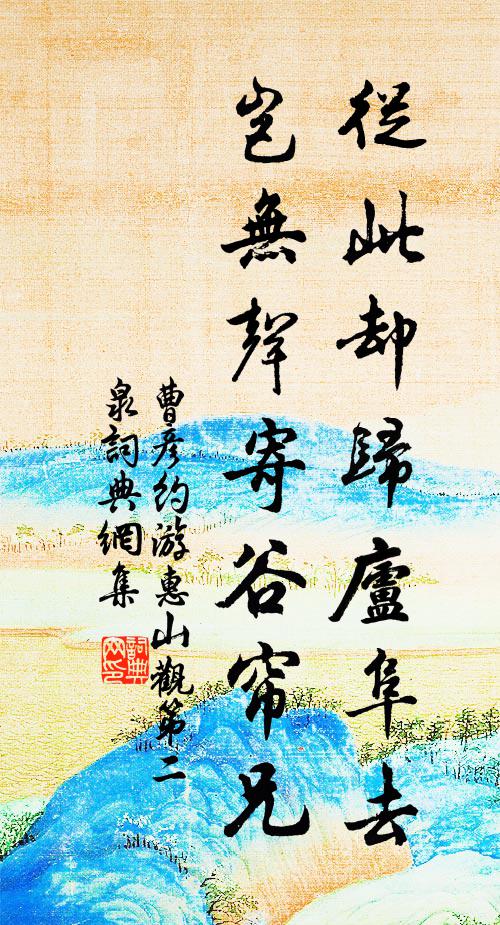 從此却歸廬阜去
豈無聲寄谷帘兄
曹彥約游惠山觀第二
泉詞典網集
詞典